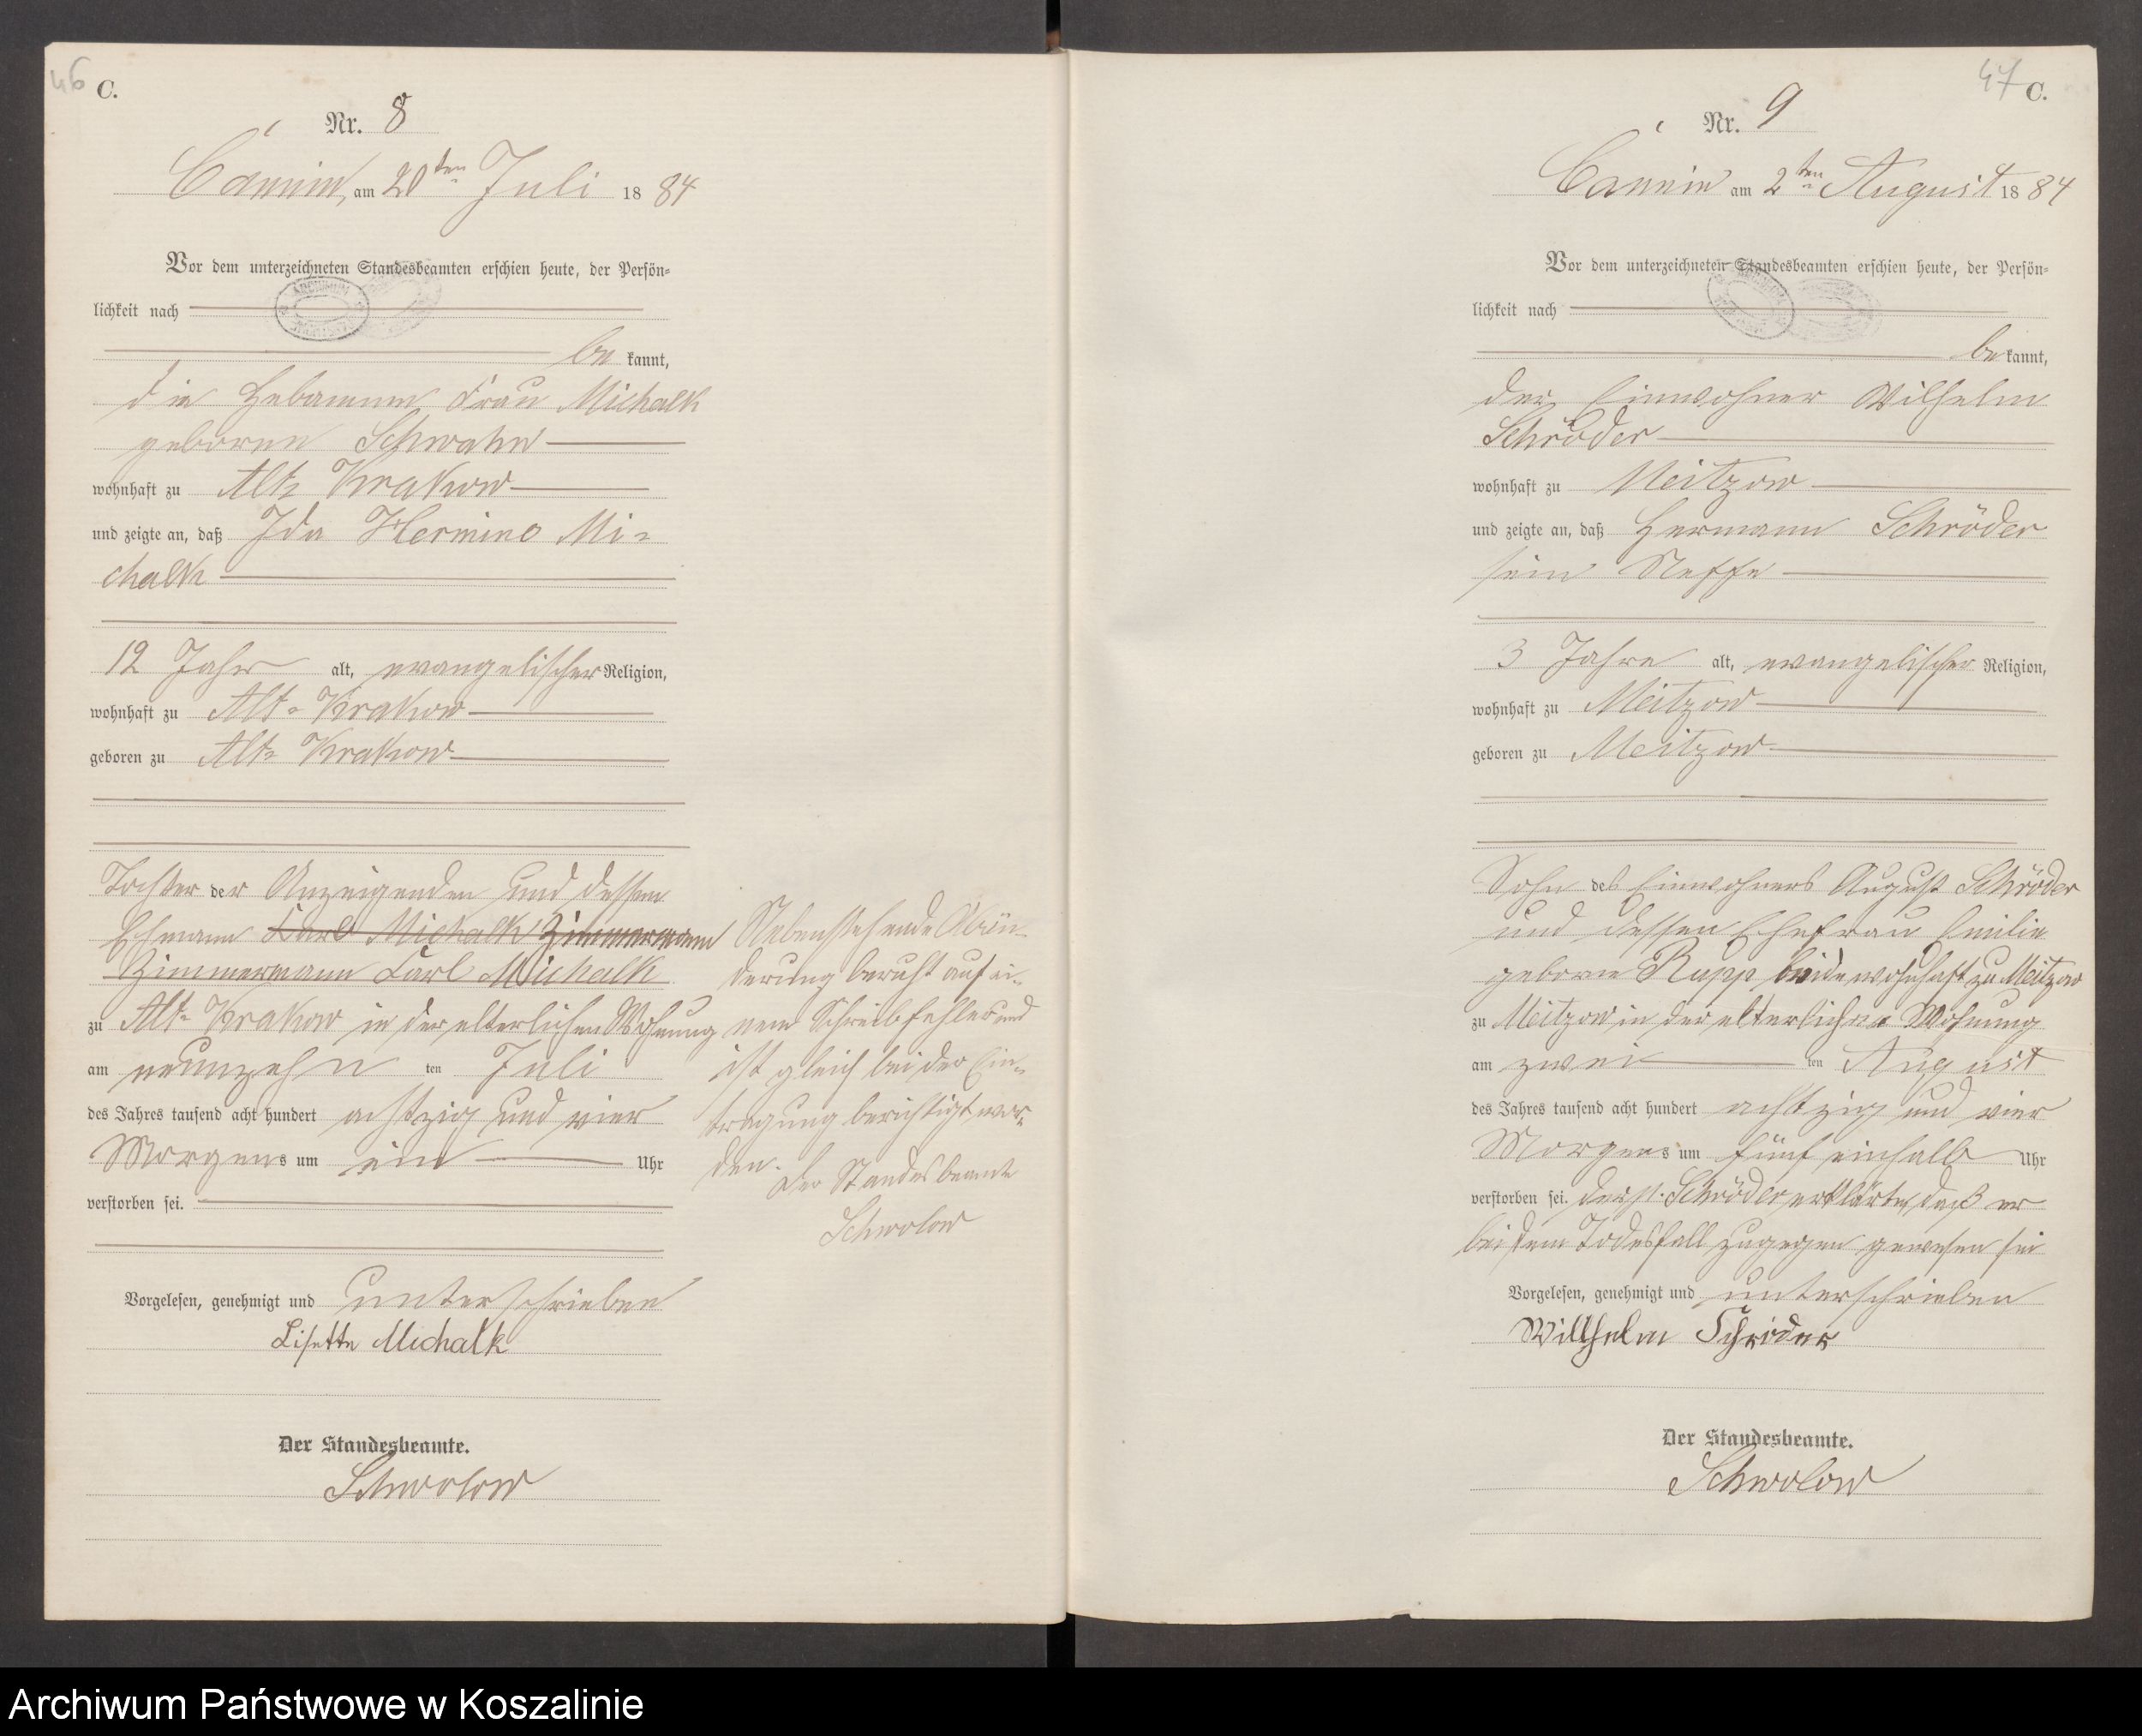 46 C.
Nr. 8
Cannin, am 20ten Juli 1884
Vor dem unterzeichneten Standesbeamten erschien heute, der Persön-
lichkeit nach
be kannt,
die Hebamme Frau Michalk
geborene Schwahn
wohnhaft zu Alt- Krakow
und zeigte an, daß Ida Hermine Mi-
chalk
12 Jahr alt, evangelischer Religion,
wohnhaft zu Alt- Krakow
geboren zu Alt- Krakow
Tochter der Anzeigenden und dessen
Ehmann Karl Michalk Zimmermann
Zimmermann Karl Michalk
zu Alt- Krakow in der elterlichen Wohnung
am neunzehn ten Juli
des Jahres tausend acht hundert achtzig und vier
Morgens um ein Uhr
verstorben sei.
Vorgelesen, genehmigt und unterschrieben
Lisette Michalk
Der Standesbeamte.
Schwolow
Nebenstehende Abän-
derung beruht auf ei-
nem Schreibfehler und
ist gleich bei der Ein-
tragung berichtigt wor-
den.
Der Standesbeamte
Schwolow
47 C.
Nr. 9
Cannin am 2ten August 1884
Vor dem unterzeichneten Standesbeamten erschien heute, der Persön-
lichkeit nach
be kannt,
der Einwohner Wilhelm
Schröder
wohnhaft zu Meitzow
und zeigte an, daß Hermann Schröder
sein Neffe
3 Jahre alt, evangelischer Religion,
wohnhaft zu Meitzow
geboren zu Meitzow
Sohn des Einwohners August Schröder
und dessen Ehefrau Emilie
geborne Rupp beide wohnhaft zu Meitzow
zu Meitzow in der elterlichen Wohnung
am zwei ten August
des Jahres tausend acht hundert achtzig und vier
Morgens um fünf einhalb Uhr
verstorben sei. Der p. Schröder erklärte, daß er
bei dem Todesfall zugegen gewesen sei
Vorgelesen, genehmigt und unterschrieben
Willhelm Schröder
Der Standesbeamte.
Schwolow
Archiwum Państwowe w Koszalinie